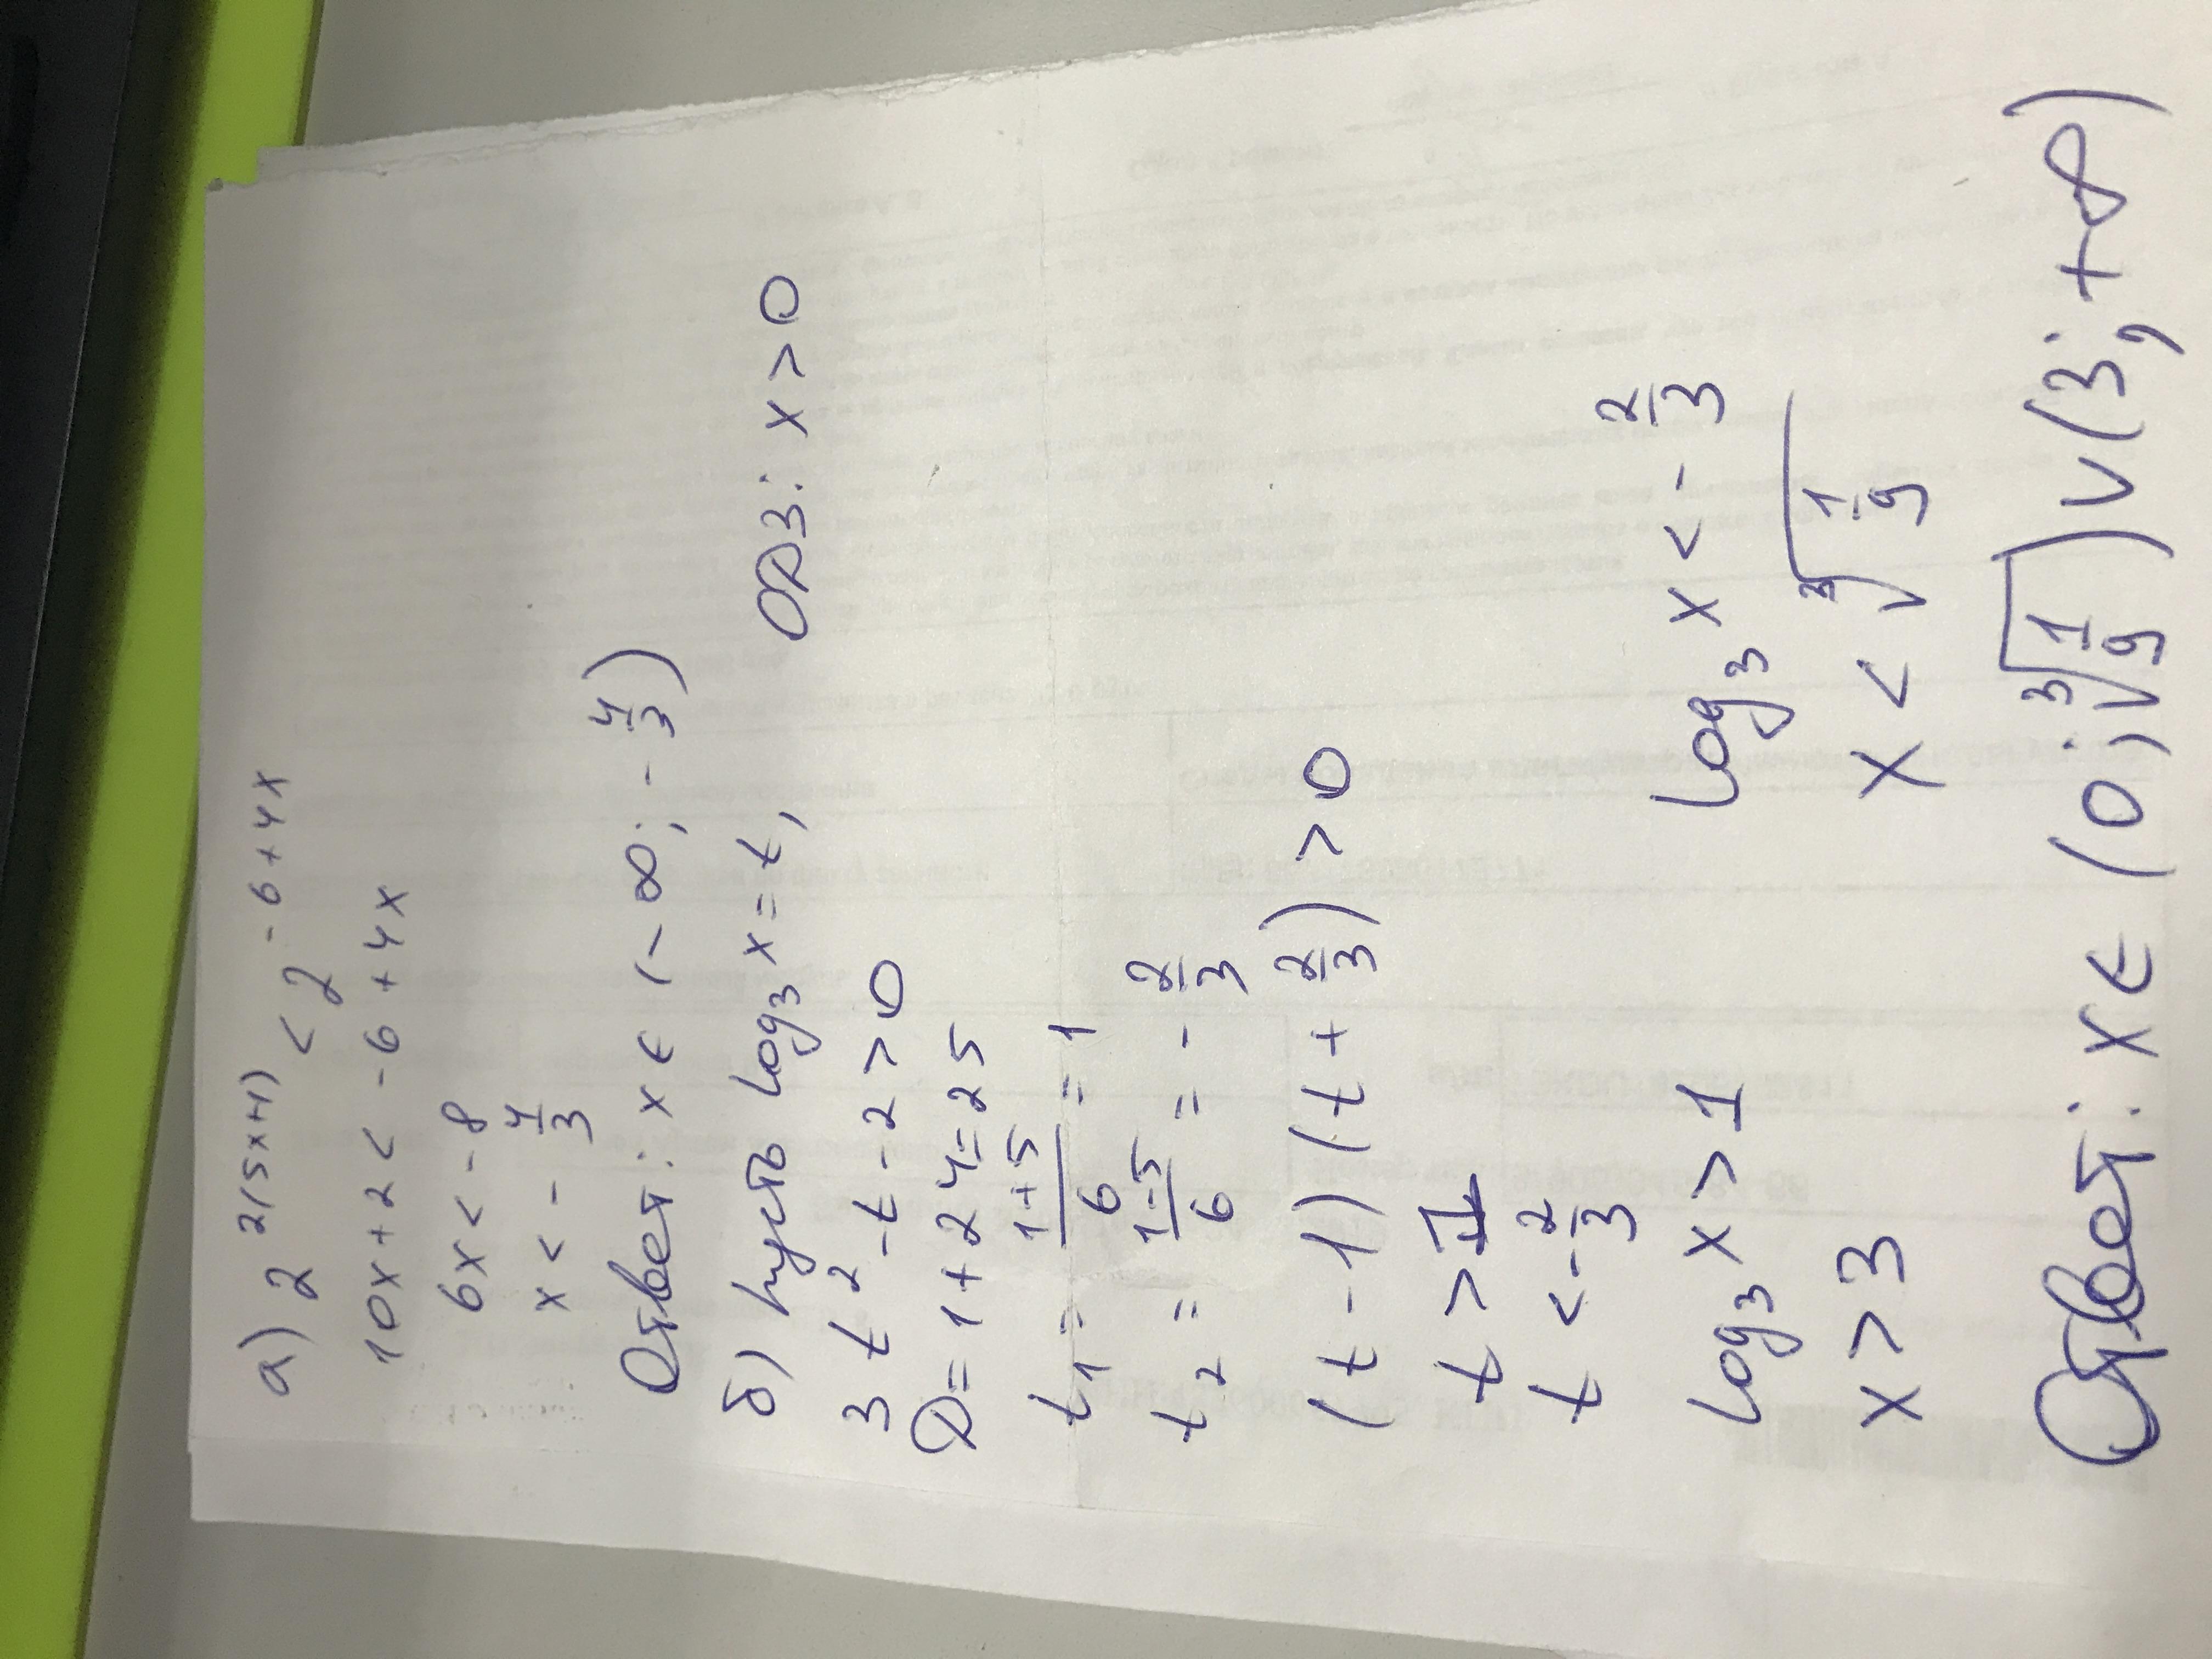 а) 2^{2(5x+1)} < 2^{-6+4x}
10x+2 < -6+4x
6x < -8
x < -4/3
Ответ: x ∈ (-∞; -4/3)
б) Пусть log₃x = t, ОДЗ: x > 0
3t² - t - 2 > 0
D = 1 + 24 = 25
t₁ = (1+5)/6 = 1
t₂ = (1-5)/6 = -2/3
(t - 1)(t + 2/3) > 0
t > 1
t < -2/3
log₃x > 1 log₃x < -2/3
x > 3 x < ∛(1/9)
Ответ: x ∈ (0; ∛(1/9)) ∪ (3; +∞)